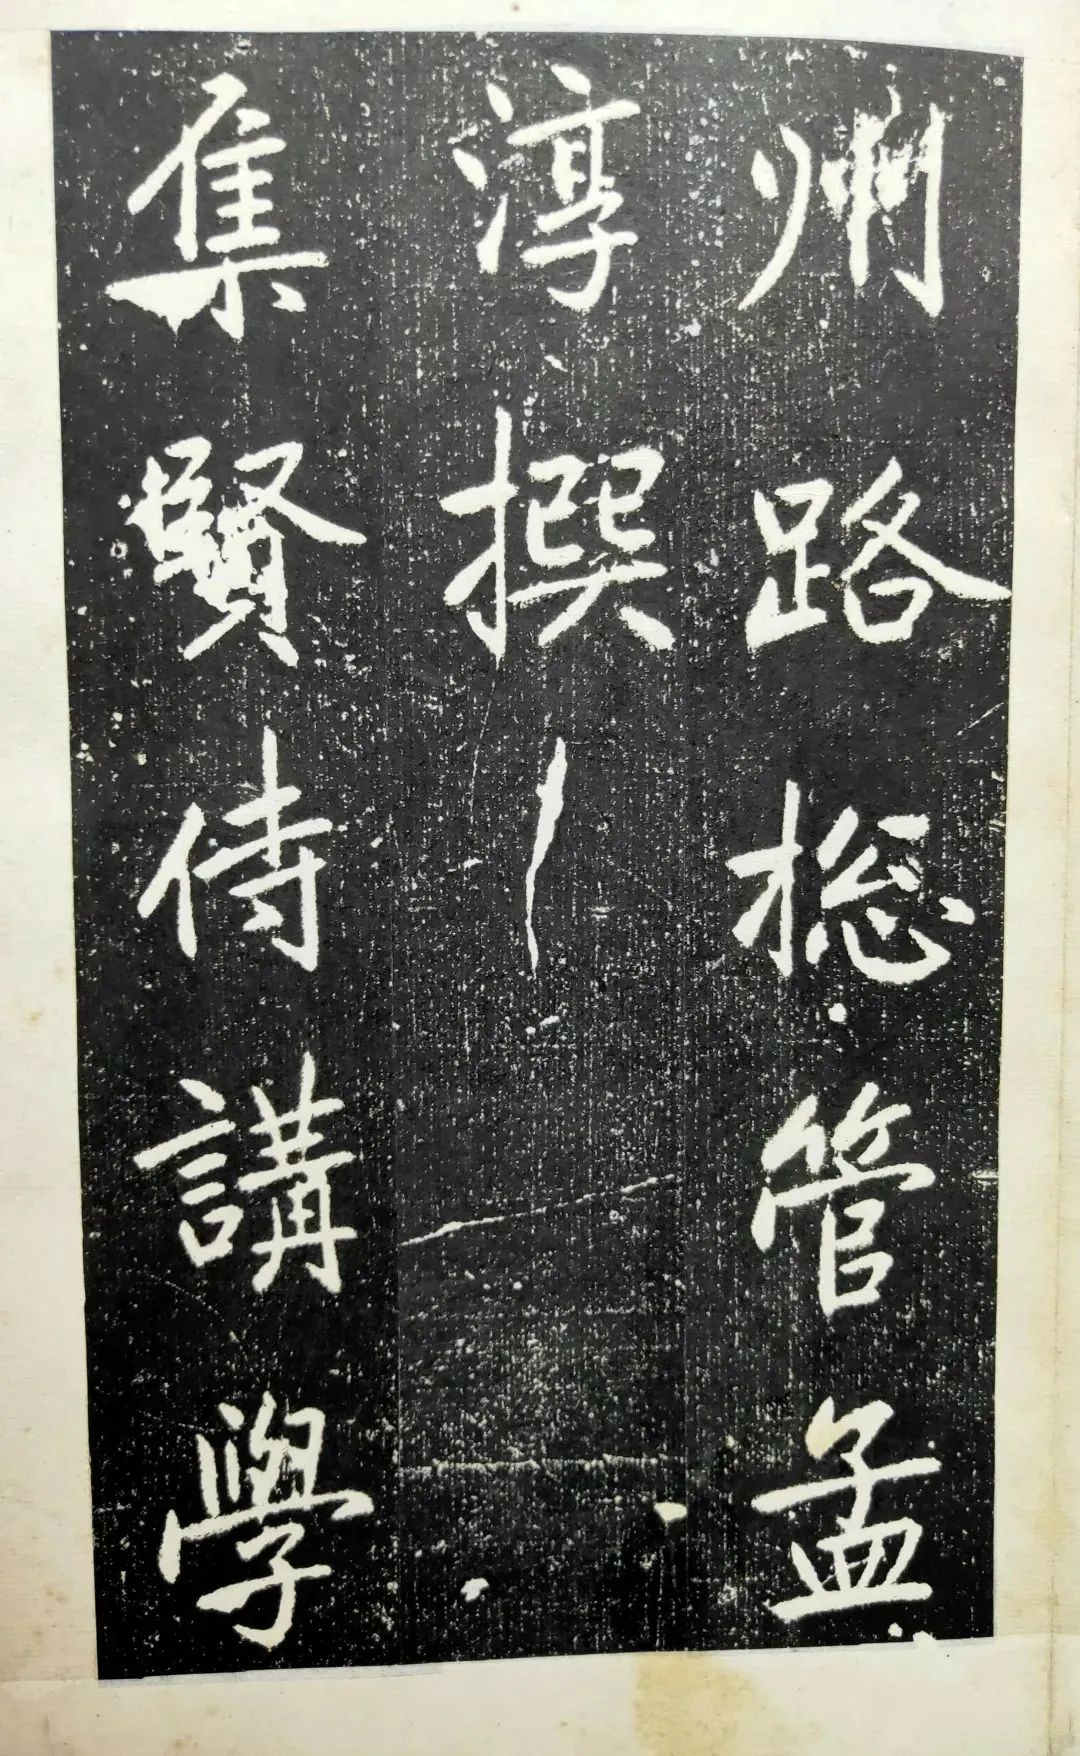 州路揔管孟
淳撰
集賢侍講學